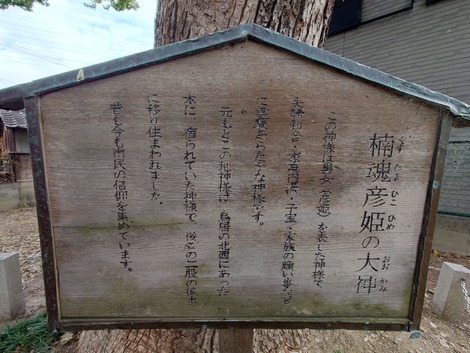 楠魂彦姫の大神
くすたまひこひめ おおかみ
この神様は男女(彦姫)を表した神様で
夫婦和合・家庭円満・子宝・家族の願い事など
に近隣あらたかな神様です。
元もとこの神様は、鳥居の北西にあった
木に、宿られていた神様で、後この二股の楠木
に移り住まわれました。
昔も今も市民の信仰を集めています。